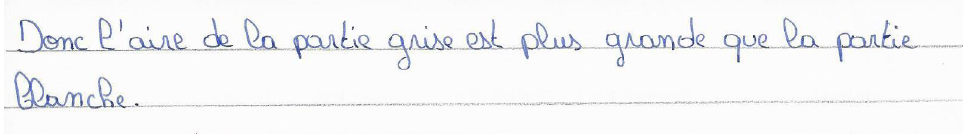 Donc l'aire de la partie grise est plus grande que la partie
blanche.